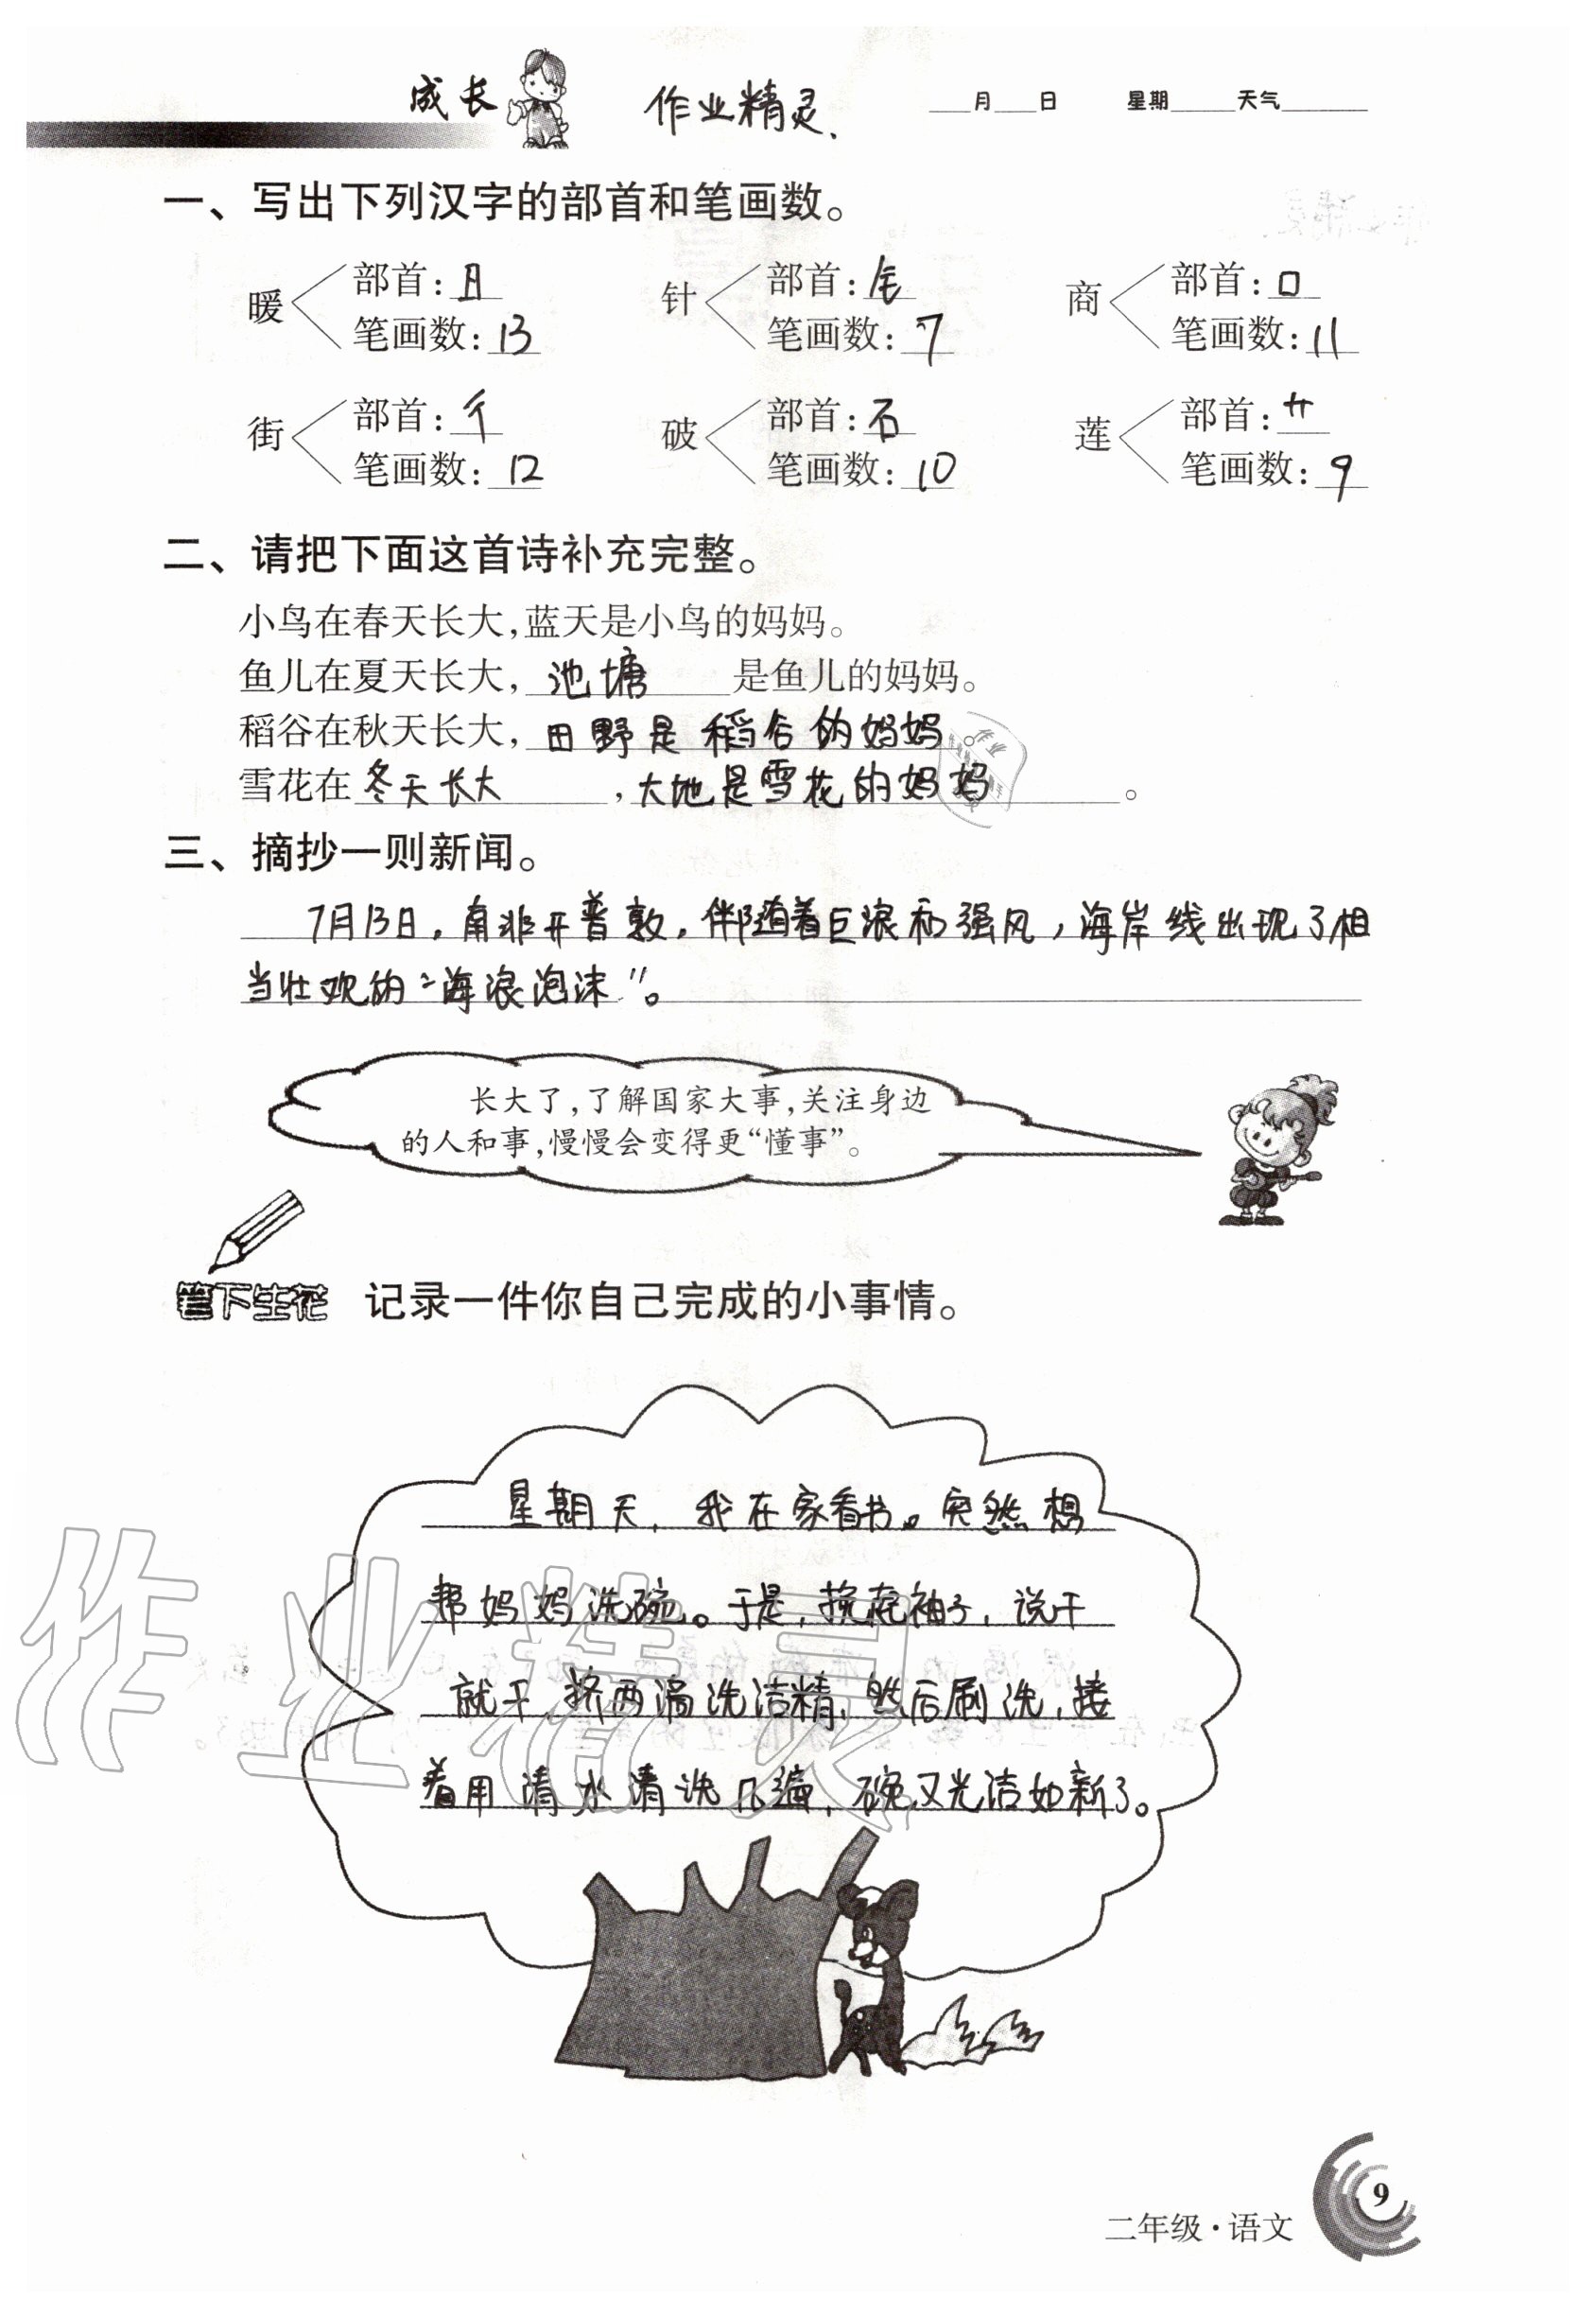 成长 作业精灵.
___月___日 星期____天气____
一、写出下列汉字的部首和笔画数。
暖 部首:日 针 部首:钅 商 部首:口
笔画数:13 笔画数:7 笔画数:11
街 部首:彳 破 部首:石 莲 部首:艹
笔画数:12 笔画数:10 笔画数:9
二、请把下面这首诗补充完整。
小鸟在春天长大,蓝天是小鸟的妈妈。
鱼儿在夏天长大,池塘是鱼儿的妈妈。
稻谷在秋天长大,田野是稻谷的妈妈。
雪花在冬天长大,大地是雪花的妈妈。
三、摘抄一则新闻。
7月13日,南非开普敦,伴随着巨浪和强风,海岸线出现了相
当壮观的“海浪泡沫”。
长大了,了解国家大事,关注身边
的人和事,慢慢会变得更“懂事”。
笔下生花 记录一件你自己完成的小事情。
星期天,我在家看书。突然想
帮妈妈洗碗。于是,挽起袖子,说干
就干,挤两滴洗洁精,然后刷洗,接
着用清水清洗几遍,碗又光洁如新了。
作业精灵
二年级·语文
9